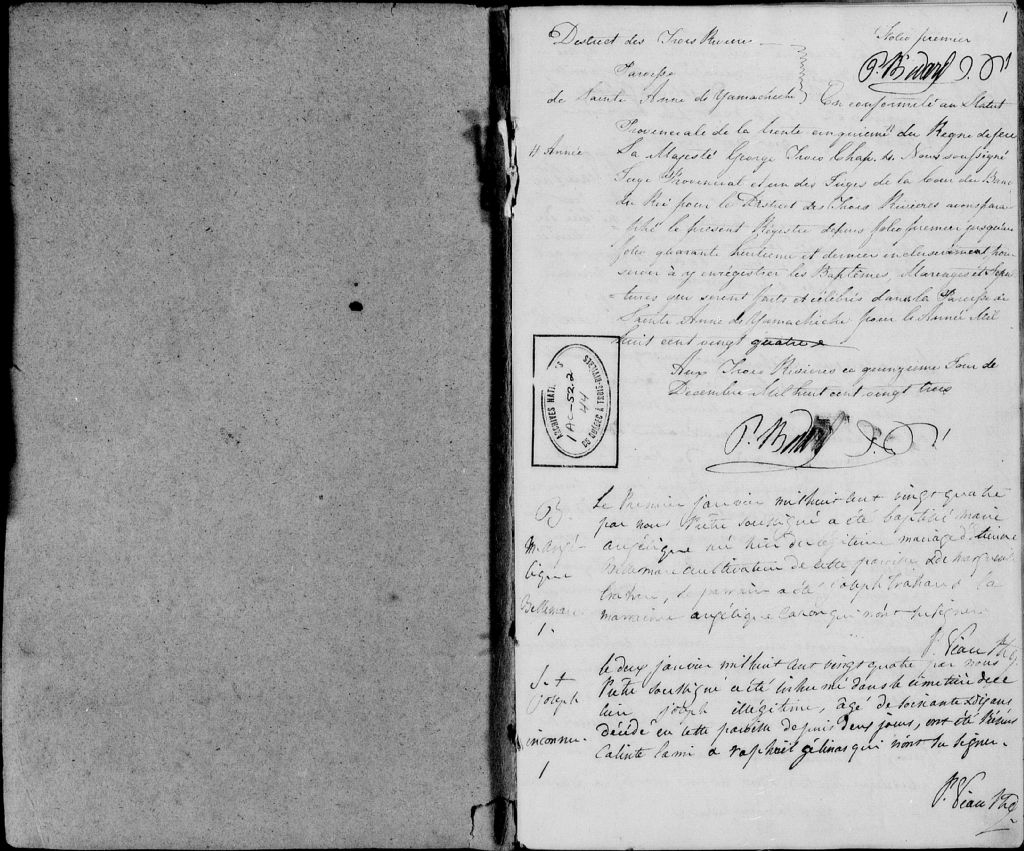 1
District des Trois Rivieres
Folio premier
P. Bedard J. P.
Paroisse
de Sainte Anne de Yamachiche } En conformité au Statut
Provinciale de la trente cinquieme " du Regne de feu
" Année
Sa Majesté George Trois Chap. 4. Nous soussigné
Juge Provincial et un des Juges de la Cour du Banc
du Roi pour le District des Trois Rivieres avons para
=phé le present Registre depuis folio premier jusqu'au
folio quarante huitieme et dernier inclusivement pour
servir à y enrégistrer les Baptêmes, Mariages et Sepul
=tures qui seront faits et célébrés dans la Paroisse de
Sainte Anne de Yamachiche pour l'Année Mil
huit cent vingt quatre
Aux Trois Rivieres ce quinzieme Jour de
Decembre Mil huit cent vingt trois
P. Bedard J. P.
ARCHIVES NATI S
DU QUÉBEC À TROIS-RIVIÈRES
1 AC-52.2
44
B.
M. Angé-
lique
Bellemare
1.
Le Premier janvier mil huit cent vingt quatre
par nous Prêtre soussigné a été baptisée marie
angélique née hier du légitime mariage d'etienne
Bellemare cultivateur de cette paroisse & de marguerite
trahan, le parrain a été joseph trahan & la
marraine angélique caron qui n'ont su signer
P. Veau Ptre
S. +
joseph
inconnu.
1
le deux janvier mil huit cent vingt quatre par nous
Prêtre soussigné a été inhumé dans le cimetière de ce
lieu joseph illégitime, âgé de soixante & dix ans
décédé en cette paroisse depuis deux jours, ont été présens
Calixte Lami & raphaël gélinas qui n'ont su signer.
P. Veau Ptre